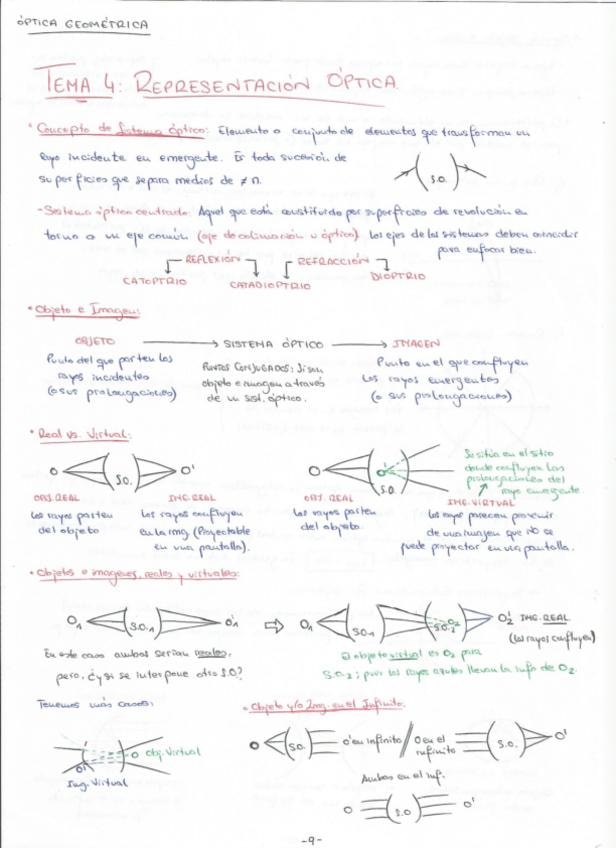 ÓPTICA GEOMÉTRICA
TEMA 4: REPRESENTACIÓN ÓPTICA.
• Concepto de Sistema óptico: Elemento o conjunto de elementos que transforman un
rayo incidente en emergente. Es toda sucesión de
superficies que separa medios de ≠ n.
S.O.
- Sistema óptico centrado: Aquel que está constituido por superficies de revolución en
torno a un eje común (eje de colimación u óptico). Los ejes de los sistemas deben coincidir
para enfocar bien.
REFLEXIÓN REFRACCIÓN
CATOPTRIO CATADIOPTRIO DIOPTRIO
• Objeto e Imagen:
OBJETO → SISTEMA ÓPTICO → IMAGEN
Punto del que parten los
rayos incidentes
(o sus prolongaciones)
PUNTOS CONJUGADOS: Si son
objeto e imagen a través
de un sist. óptico.
Punto en el que confluyen
los rayos emergentes
(o sus prolongaciones)
• Real vs. Virtual:
O S.O. O'
OBJ. REAL IMG. REAL
Los rayos parten
del objeto
Los rayos confluyen
en la img (Proyectable
en una pantalla).
O O' S.O.
Se sitúa en el sitio
donde confluyen las
prolongaciones del
rayo emergente
OBJ. REAL IMG. VIRTUAL
Los rayos parten
del objeto.
Los rayos parecen provenir
de una imagen que no se
puede proyectar en una pantalla.
• Objetos e imágenes, reales y virtuales:
O1 S.O.1 O'1 ⇒ O1 S.O.1 S.O.2 O2 O'2 IMG. REAL
(los rayos confluyen)
En este caso ambos serían reales,
pero, ¿y si se interpone otro S.O?
El objeto virtual es O2 para
S.O.2; pues los rayos azules llevan la info de O2.
Tenemos más casos:
O' O Obj. Virtual
Img. Virtual
• Objeto y/o Img. en el Infinito.
O S.O. O' en infinito / O en el infinito S.O. O'
Ambos en el inf.
O S.O O'
-9-